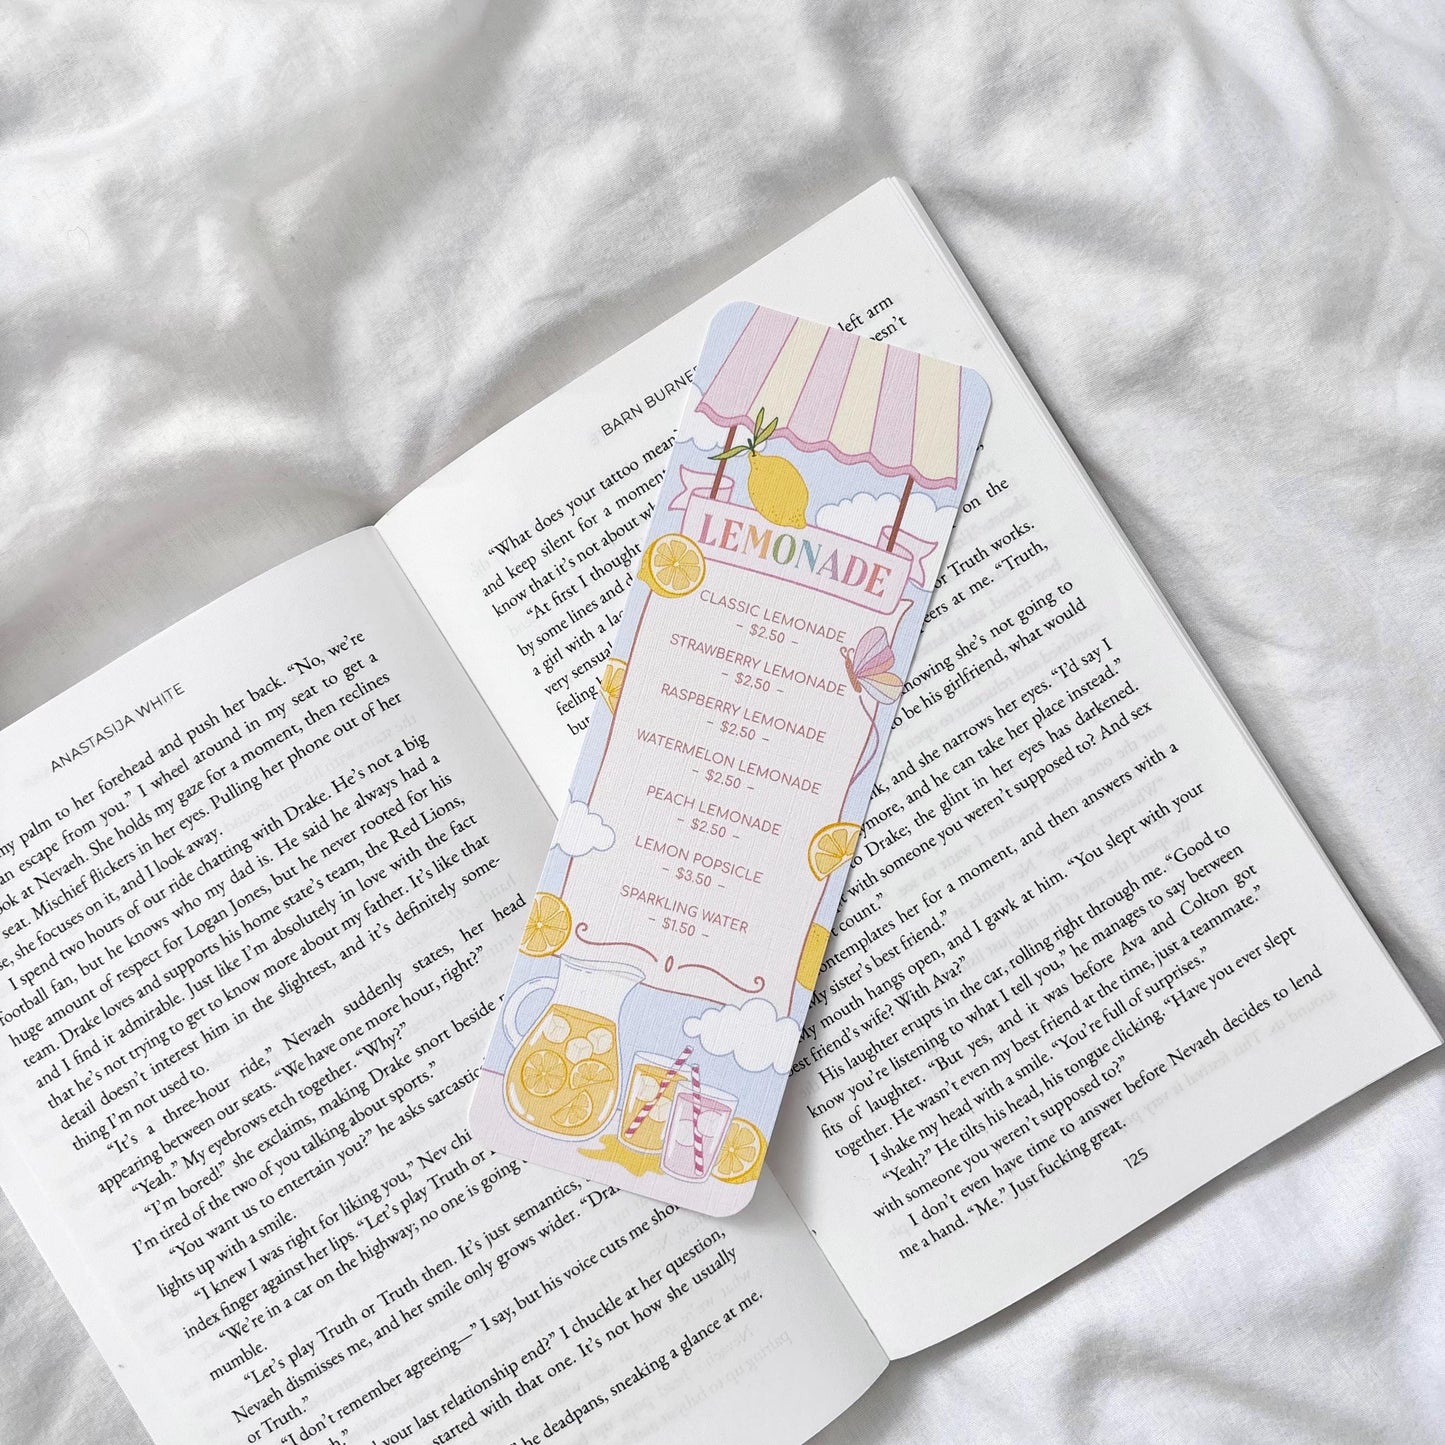 ANASTASIJA WHITE
my palm to her forehead and push her back. “No, we’re
an escape from you.” I wheel around in my seat to get a
look at Nevaeh. She holds my gaze for a moment, then reclines
seat. Mischief flickers in her eyes. Pulling her phone out of her
she focuses on it, and I look away.
I spend two hours of our ride chatting with Drake. He’s not a big
football fan, but he knows who my dad is. He said he always had a
huge amount of respect for Logan Jones, but he never rooted for his
team. Drake loves and supports his home state’s team, the Red Lions,
and I find it admirable. Just like I’m absolutely in love with the fact
that he’s not trying to get to know more about my father. It’s like that
detail doesn’t interest him in the slightest, and it’s definitely some-
thing I’m not used to.
“It’s a three-hour ride,” Nevaeh suddenly states, her head
appearing between our seats. “We have one more hour, right?”
“Yeah.” My eyebrows etch together. “Why?”
“I’m bored!” she exclaims, making Drake snort beside
I’m tired of the two of you talking about sports.”
“You want us to entertain you?” he asks sarcastic
lights up with a smile.
“I knew I was right for liking you,” Nev chi
index finger against her lips. “Let’s play Truth or
“We’re in a car on the highway; no one is going
mumble.
“Let’s play Truth or Truth then. It’s just semantics,
Nevaeh dismisses me, and her smile only grows wider. “Dra
or Truth.”
“I don’t remember agreeing—” I say, but his voice cuts me shor
your last relationship end?” I chuckle at her question,
started with that one. It’s not how she usually
he deadpans, sneaking a glance at me.
BARN BURNE
left arm
esn’t
“What does your tattoo mean
and keep silent for a momen
know that it’s not about wh
“At first I thought
by some lines and d
a girl with a lac
very sensual
feeling
but
on the
or Truth works.
eers at me. “Truth,
nowing she’s not going to
o be his girlfriend, what would
nk, and she narrows her eyes. “I’d say I
ymore, and he can take her place instead.”
to Drake; the glint in her eyes has darkened.
t with someone you weren’t supposed to? And sex
t count.”
ontemplates her for a moment, and then answers with a
My sister’s best friend.”
My mouth hangs open, and I gawk at him. “You slept with your
best friend’s wife? With Ava?”
His laughter erupts in the car, rolling right through me. “Good to
know you’re listening to what I tell you,” he manages to say between
fits of laughter. “But yes, and it was before Ava and Colton got
together. He wasn’t even my best friend at the time, just a teammate.”
I shake my head with a smile. “You’re full of surprises.”
“Yeah?” He tilts his head, his tongue clicking. “Have you ever slept
with someone you weren’t supposed to?”
I don’t even have time to answer before Nevaeh decides to lend
me a hand. “Me.” Just fucking great.
125
LEMONADE
CLASSIC LEMONADE
- $2.50 -
STRAWBERRY LEMONADE
- $2.50 -
RASPBERRY LEMONADE
- $2.50 -
WATERMELON LEMONADE
- $2.50 -
PEACH LEMONADE
- $2.50 -
LEMON POPSICLE
- $3.50 -
SPARKLING WATER
- $1.50 -